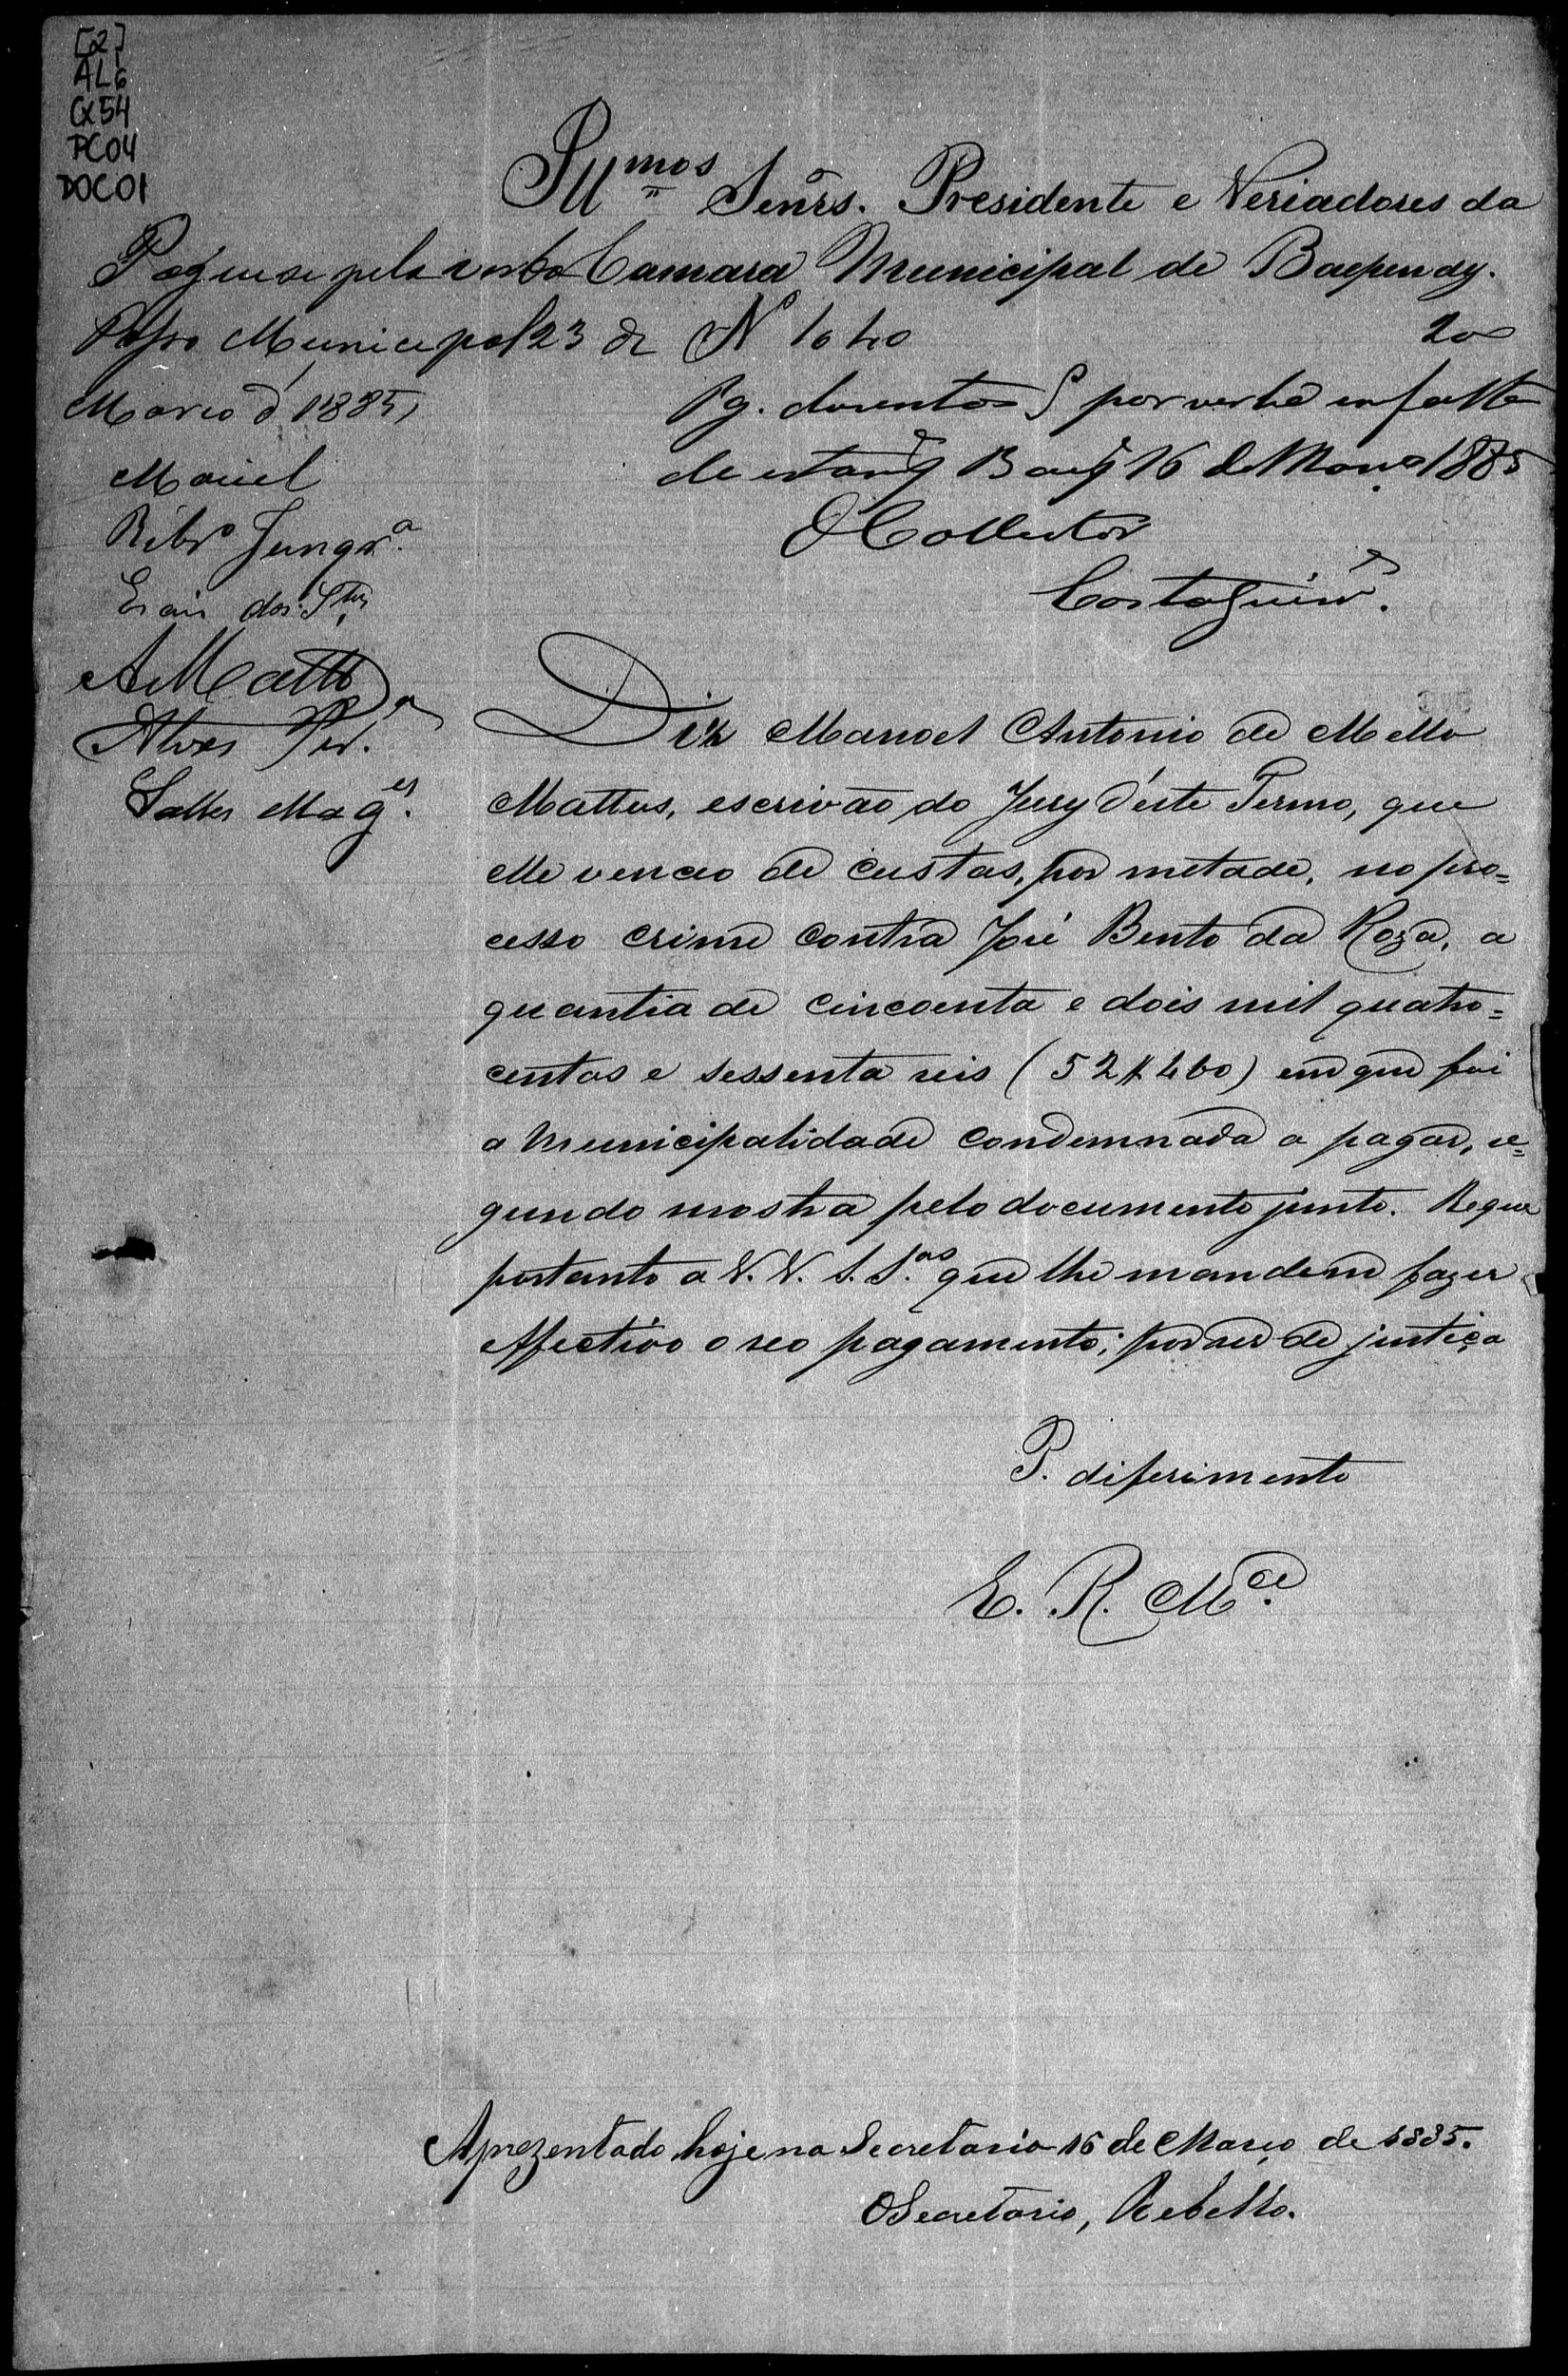 [2]
AL6
CX54
PC04
DOC01
Illmos Senrs. Presidente e Veriadores da
Camara Municipal de Baependy.
Pague-se pela verba
Paço Municipal 23 de
Março d' 1885,
Maciel
Ribro Junqra.
Esaú dos Stos,
A Matto
Alves Per.a
Salles Mages.
No 1040 200
Pg. duzentos rs por verba em falta
de estampª Baepy 16 de Março 1885
O Collector
Costa Guimes.
Diz Manoel Antonio de Mello
Mattos, escrivão do Jury d'este Termo, que
elle venceo de custas, por metade, no pro=
cesso crime contra José Bento da Roza, a
quantia de cincoenta e dois mil quatro=
centos e sessenta reis (52$460) em que foi
a Municipalidade condemnada a pagar, se=
gundo mostra pelo documento junto. Requer
portanto a V. V. S. S.as que lhe mandem fazer
effectivo o seo pagamento; por ser de justiça
P. diferimento
E. R. Mce.
Aprezentado hoje na Secretaria 16 de Março de 1885.
O Secretario, Rebello.